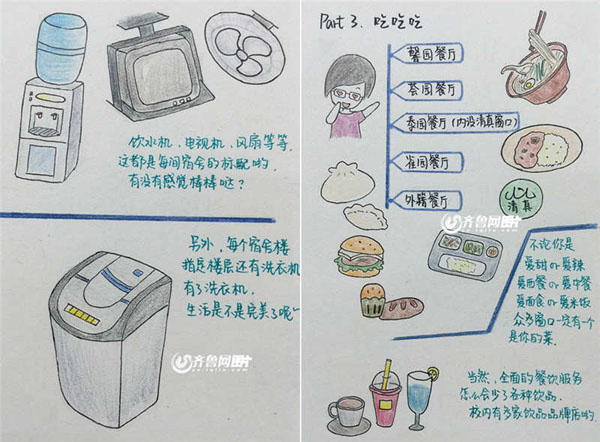 饮水机、电视机、风扇等等,
这都是每间宿舍的标配哟,
有没有感觉棒棒哒?
另外,每个宿舍楼
指定楼层还有洗衣机
有了洗衣机,
生活是不是完美了呢~
齐鲁网图片
Part 3. 吃吃吃
馨园餐厅
荟园餐厅
泰园餐厅(内设清真窗口)
园餐厅
外籍餐厅
清真
齐鲁网图片
不论你是
爱甜or爱辣
爱西餐or爱中餐
爱面食or爱米饭
众多窗口一定有一个
是你的菜.
当然,全面的餐饮服务
怎么会少了各种饮品.
校内有多家饮品品牌店哟.